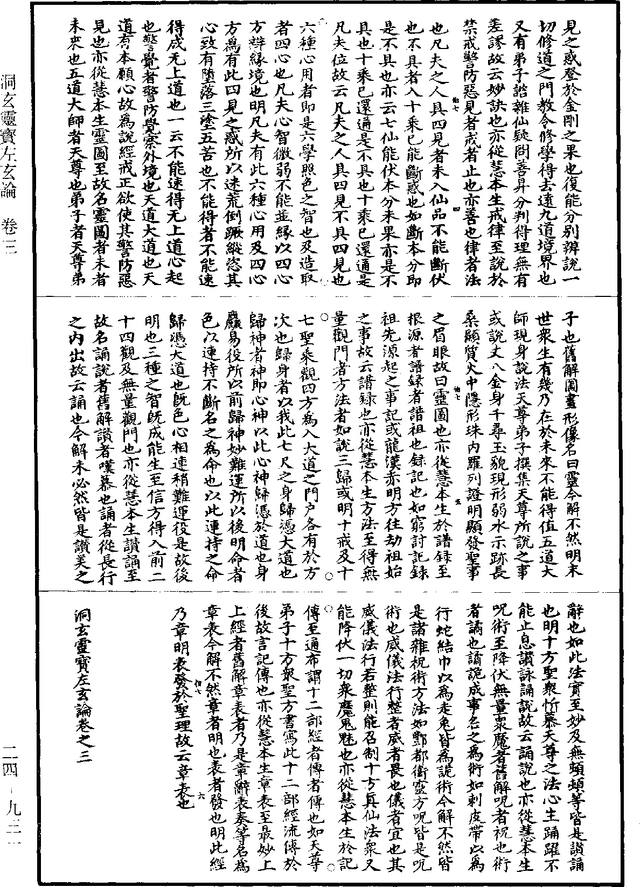 洞玄靈寶左玄論 卷三
二四-九三一
見之惑登於金剛之果也復能分別辨說一
切修道之門教令修學得去遠九道境界也
又有弟子諮雜仙疑問善昇分判得理無有
差謬故云妙訣也亦從慧本生戒律至說於
禁戒警防惡見者戒者止也亦善也律者法
也凡夫之人具四見者未入仙品不能斷伏
也不具者入十乘已能斷惑也如斷本分即
是不具也亦云七仙能伏本分來果亦是不
具也十乘已還通是不具也十乘已還通是
凡夫位故云凡夫之人具四見不具四見也
六種心用者即是六學照色之智也及造取
者四心也凡夫心智微弱不能並緣以四心
方辨緣境也明凡夫有此六種心用及四心
方為有此四見之惑所以迷荒倒蹶縱恣其
心致有墮落三塗五苦也不能得者不能速
得成无上道也一云不能速得无上道心起
也警覺者警防覺察外境也天道大道也天
道有本願心故為說經戒正欲使其警防惡
見也亦從慧本生靈圖至故名靈圖者未者
未來也五道大師者天尊也弟子者天尊弟
子也舊解圖畫形像名曰靈今解不然明末
世衆生有幾乃在於未來不能得值五道大
師現身說法天尊弟子撰集天尊所說之事
或說丈八金身千尋玉貌現形弱水示跡長
桑顯質火中隱形珠內羅列證明顯發聖事
之眉眼故曰靈圖也亦從慧本生於譜錄至
根源者譜錄者譜祖也錄記也如窮討記錄
祖先源起之事記或龍漢赤明方往劫祖始
之事故云譜錄也亦從慧本生方法至得無
量觀門者方法者如說三歸或明十戒及十
七聖乘觀四方為入大道之門戶各有於方
次也歸身者以我此七尺之身歸憑大道也
歸神者神即心神以此心神歸憑於道也身
麤易役所以前歸神妙難運所以後明命者
色以連持不斷名之為命也以此連持之命
歸憑大道也旣色心相連稍難運役是故後
明也三種之智旣成能生至信方得入前二
十四觀及無量觀門也亦從慧本生讚誦至
故名誦說者舊解讚者嘆慕也誦者從長行
之內出故云誦也今解未必然皆是讚美之
辭也如此法實至妙及無頻頓等皆是讚誦
也明十方聖衆忻慕天尊之法心生踊躍不
能止息讚詠誦說故云誦說也亦從慧本生
呪術至降伏無量衆魔者舊解呪者祝也術
者譎也譎詭成事名之為術如刺皮帶以為
行蛇結巾以為走兔皆為詭術今解不然皆
是諸雜祝術方法如酆都衛靈方呪皆是呪
術也威儀法行整者威者畏也儀者宜也其
威儀法行若整則能召制十方真仙法衆又
能降伏一切衆魔鬼魅也亦從慧本生於記
傳至通布謂十二部經者傳者傳也如天尊
弟子十方衆聖方書寫此十二部經流傳於
後故言記傳也亦從慧本生章表至最妙上
上經者舊解章表者乃是章辭表奏等名為
章表今解不然章者明也表者發也明此經
乃章明表發於聖理故云章表也
洞玄靈寶左玄論卷之三